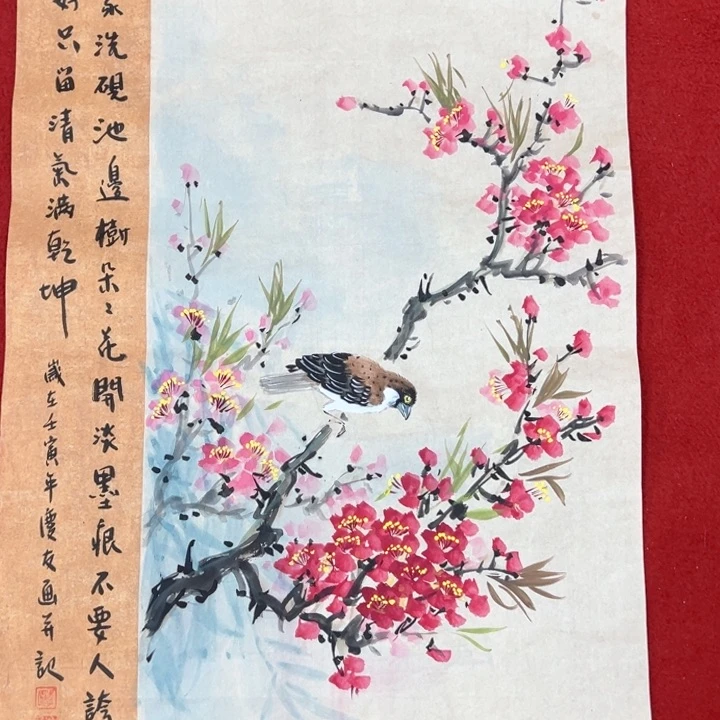 家洗硯池邊樹朵〻花開淡墨痕不要人誇
好只留清氣滿乾坤
歲在壬寅年慶友画并記